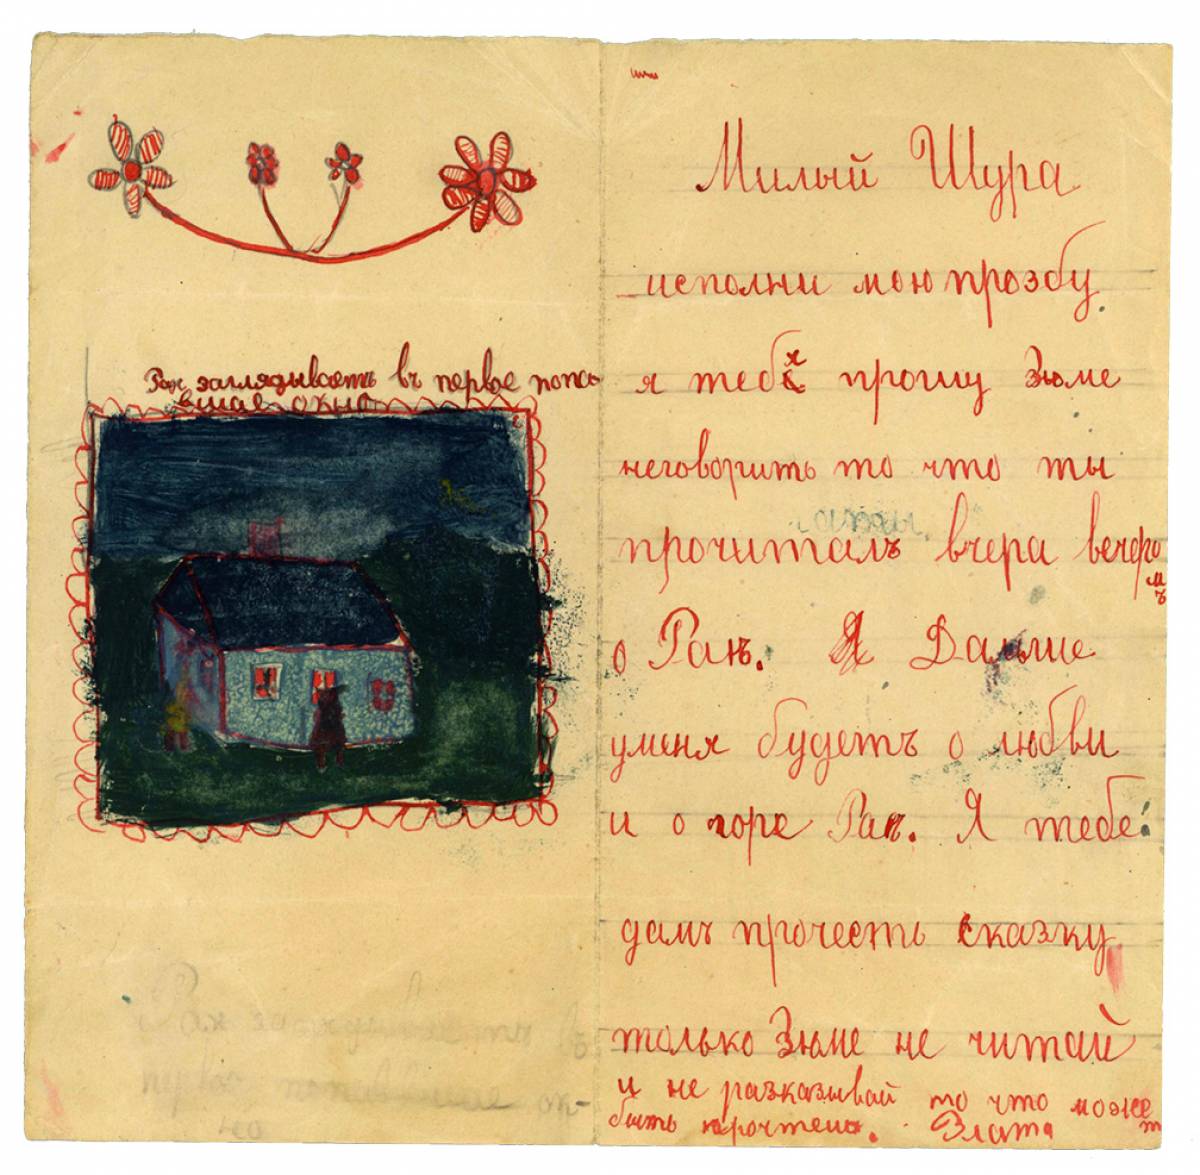 Рах заглядываетъ въ первое попа
вшае окно
Рах заглядываетъ въ
первое попавшае ок-
но
Милый Шура
исполни мою прозбу
я тебя прошу Зюме
неговорить то что ты
прочиталъ вчера вечеро
мъ
о Рахъ. Я Дальше
уменя будетъ о любви
и о горе Рах. Я тебе
дамъ прочесть сказку
только Зюме не читай
и не разказывай то что може
т
быть прочтено. Злата